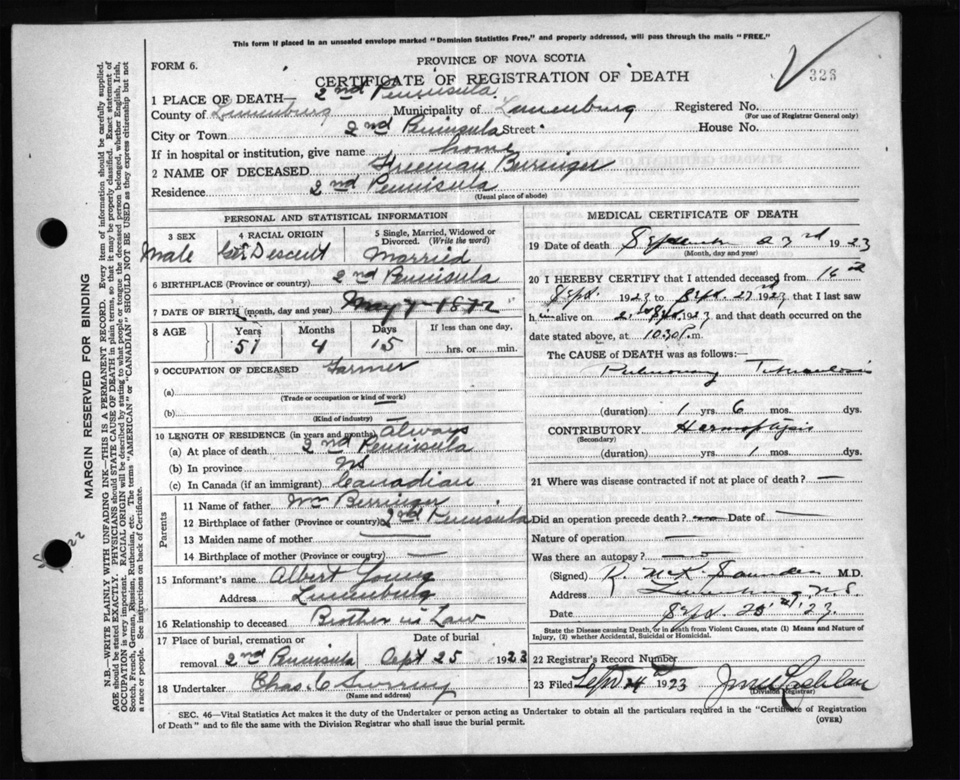 This form if placed in an unsealed envelope marked "Dominion Statistics Free," and properly addressed, will pass through the mails "FREE."
PROVINCE OF NOVA SCOTIA
323
FORM 6.
CERTIFICATE OF REGISTRATION OF DEATH
1 PLACE OF DEATH— 2nd Peninsula
County of Lunenburg Municipality of Lunenburg Registered No.
(For use of Registrar General only)
City or Town 2nd Peninsula Street House No.
If in hospital or institution, give name home
2 NAME OF DECEASED Freeman Berringer
Residence 2nd Peninsula
(Usual place of abode)
PERSONAL AND STATISTICAL INFORMATION
3 SEX 4 RACIAL ORIGIN 5 Single, Married, Widowed or Divorced. (Write the word)
Male Ger Descent Married
6 BIRTHPLACE (Province or country) 2nd Peninsula
7 DATE OF BIRTH (month, day and year) May 7 1872
8 AGE Years Months Days If less than one day,
51 4 15 hrs. or min.
9 OCCUPATION OF DECEASED Farmer
(a)
(Trade or occupation or kind of work)
(b)
(Kind of industry)
10 LENGTH OF RESIDENCE (in years and months) Always
(a) At place of death 2nd Peninsula
(b) In province NS
(c) In Canada (if an immigrant) Canadian
Parents
11 Name of father Wm Berringer
12 Birthplace of father (Province or country) 2nd Peninsula
13 Maiden name of mother —
14 Birthplace of mother (Province or country) —
15 Informant's name Albert Young
Address Lunenburg
16 Relationship to deceased Brother in Law
17 Place of burial, cremation or Date of burial
removal 2nd Peninsula Sept 25 1923
18 Undertaker Chas
(Name and address)
MEDICAL CERTIFICATE OF DEATH
19 Date of death September 23rd 1923
(Month, day and year)
20 I HEREBY CERTIFY that I attended deceased from 16
Sept. 1923 to Sept. 1923, that I last saw
him alive on 1923 and that death occurred on
date stated above, at 10.30 P.m.
The CAUSE of DEATH was as follows:—
Pulmonary Tuberculosis
(duration) 1 yrs. 6 mos. dys.
CONTRIBUTORY Hermoptysis
(Secondary)
(duration) yrs. 1 mos. dys.
21 Where was disease contracted if not at place of death? —
Did an operation precede death? — Date of —
Nature of operation —
Was there an autopsy?
(Signed) R. McK. Saunders M.D.
Address Lunenburg, N.S.
Date Sept. '23
State the Disease causing Death, or in death from Violent Causes, state (1) Means and Nature of Injury, (2) whether Accidental, Suicidal or Homicidal.
22 Registrar's Record Number
23 Filed Sept 24 1923
(Division Registrar)
SEC. 46—Vital Statistics Act makes it the duty of the Undertaker or person acting as Undertaker to obtain all the particulars required in the "Certificate of Registration
of Death" and to file the same with the Division Registrar who shall issue the burial permit.
(OVER)
MARGIN RESERVED FOR BINDING
N.B.—WRITE PLAINLY WITH UNFADING INK—THIS IS A PERMANENT RECORD. Every item of information should be carefully supplied.
AGE should be stated EXACTLY. PHYSICIANS should STATE CAUSE OF DEATH in plain terms, so that it may be properly classified. Exact statement of
OCCUPATION is very important. RACIAL ORIGIN will be described by stating to what people or tongue the deceased person belonged, whether English, Irish,
Scotch, French, German, Russian, Ruthenian, etc. The terms "AMERICAN" or "CANADIAN" SHOULD NOT BE USED as they express citizenship but not
a race or people. See instructions on back of Certificate.